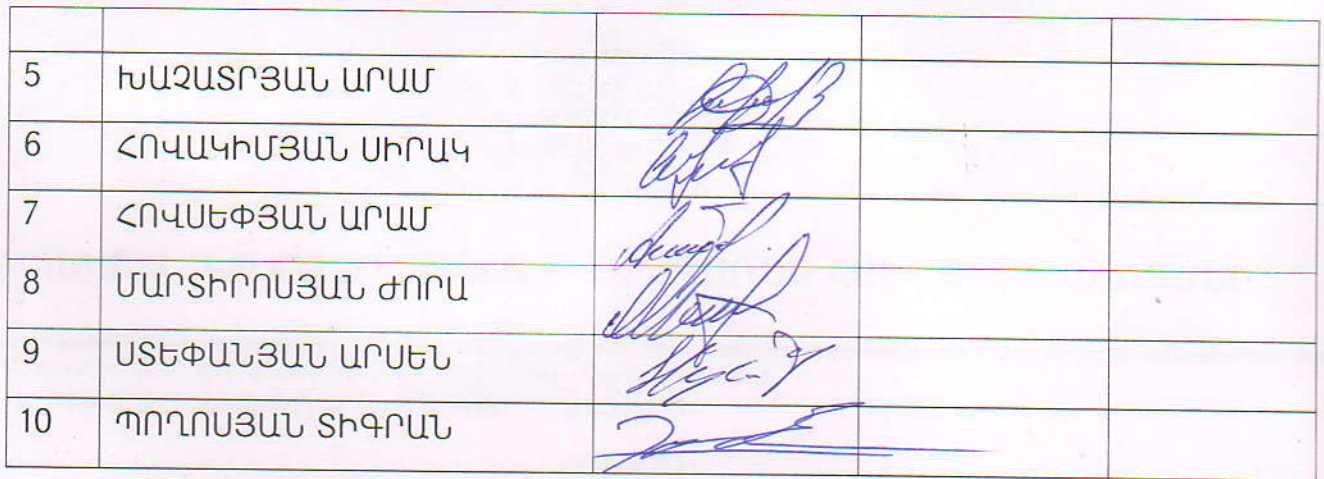 5 ԽԱՉԱՏՐՅԱՆ ԱՐԱՄ
6 ՀՈՎԱԿԻՄՅԱՆ ՍԻՐԱԿ
7 ՀՈՎՍԵՓՅԱՆ ԱՐԱՄ
8 ՄԱՐՏԻՐՈՍՅԱՆ ԺՈՐԱ
9 ՍՏԵՓԱՆՅԱՆ ԱՐՍԵՆ
10 ՊՈՂՈՍՅԱՆ ՏԻԳՐԱՆ